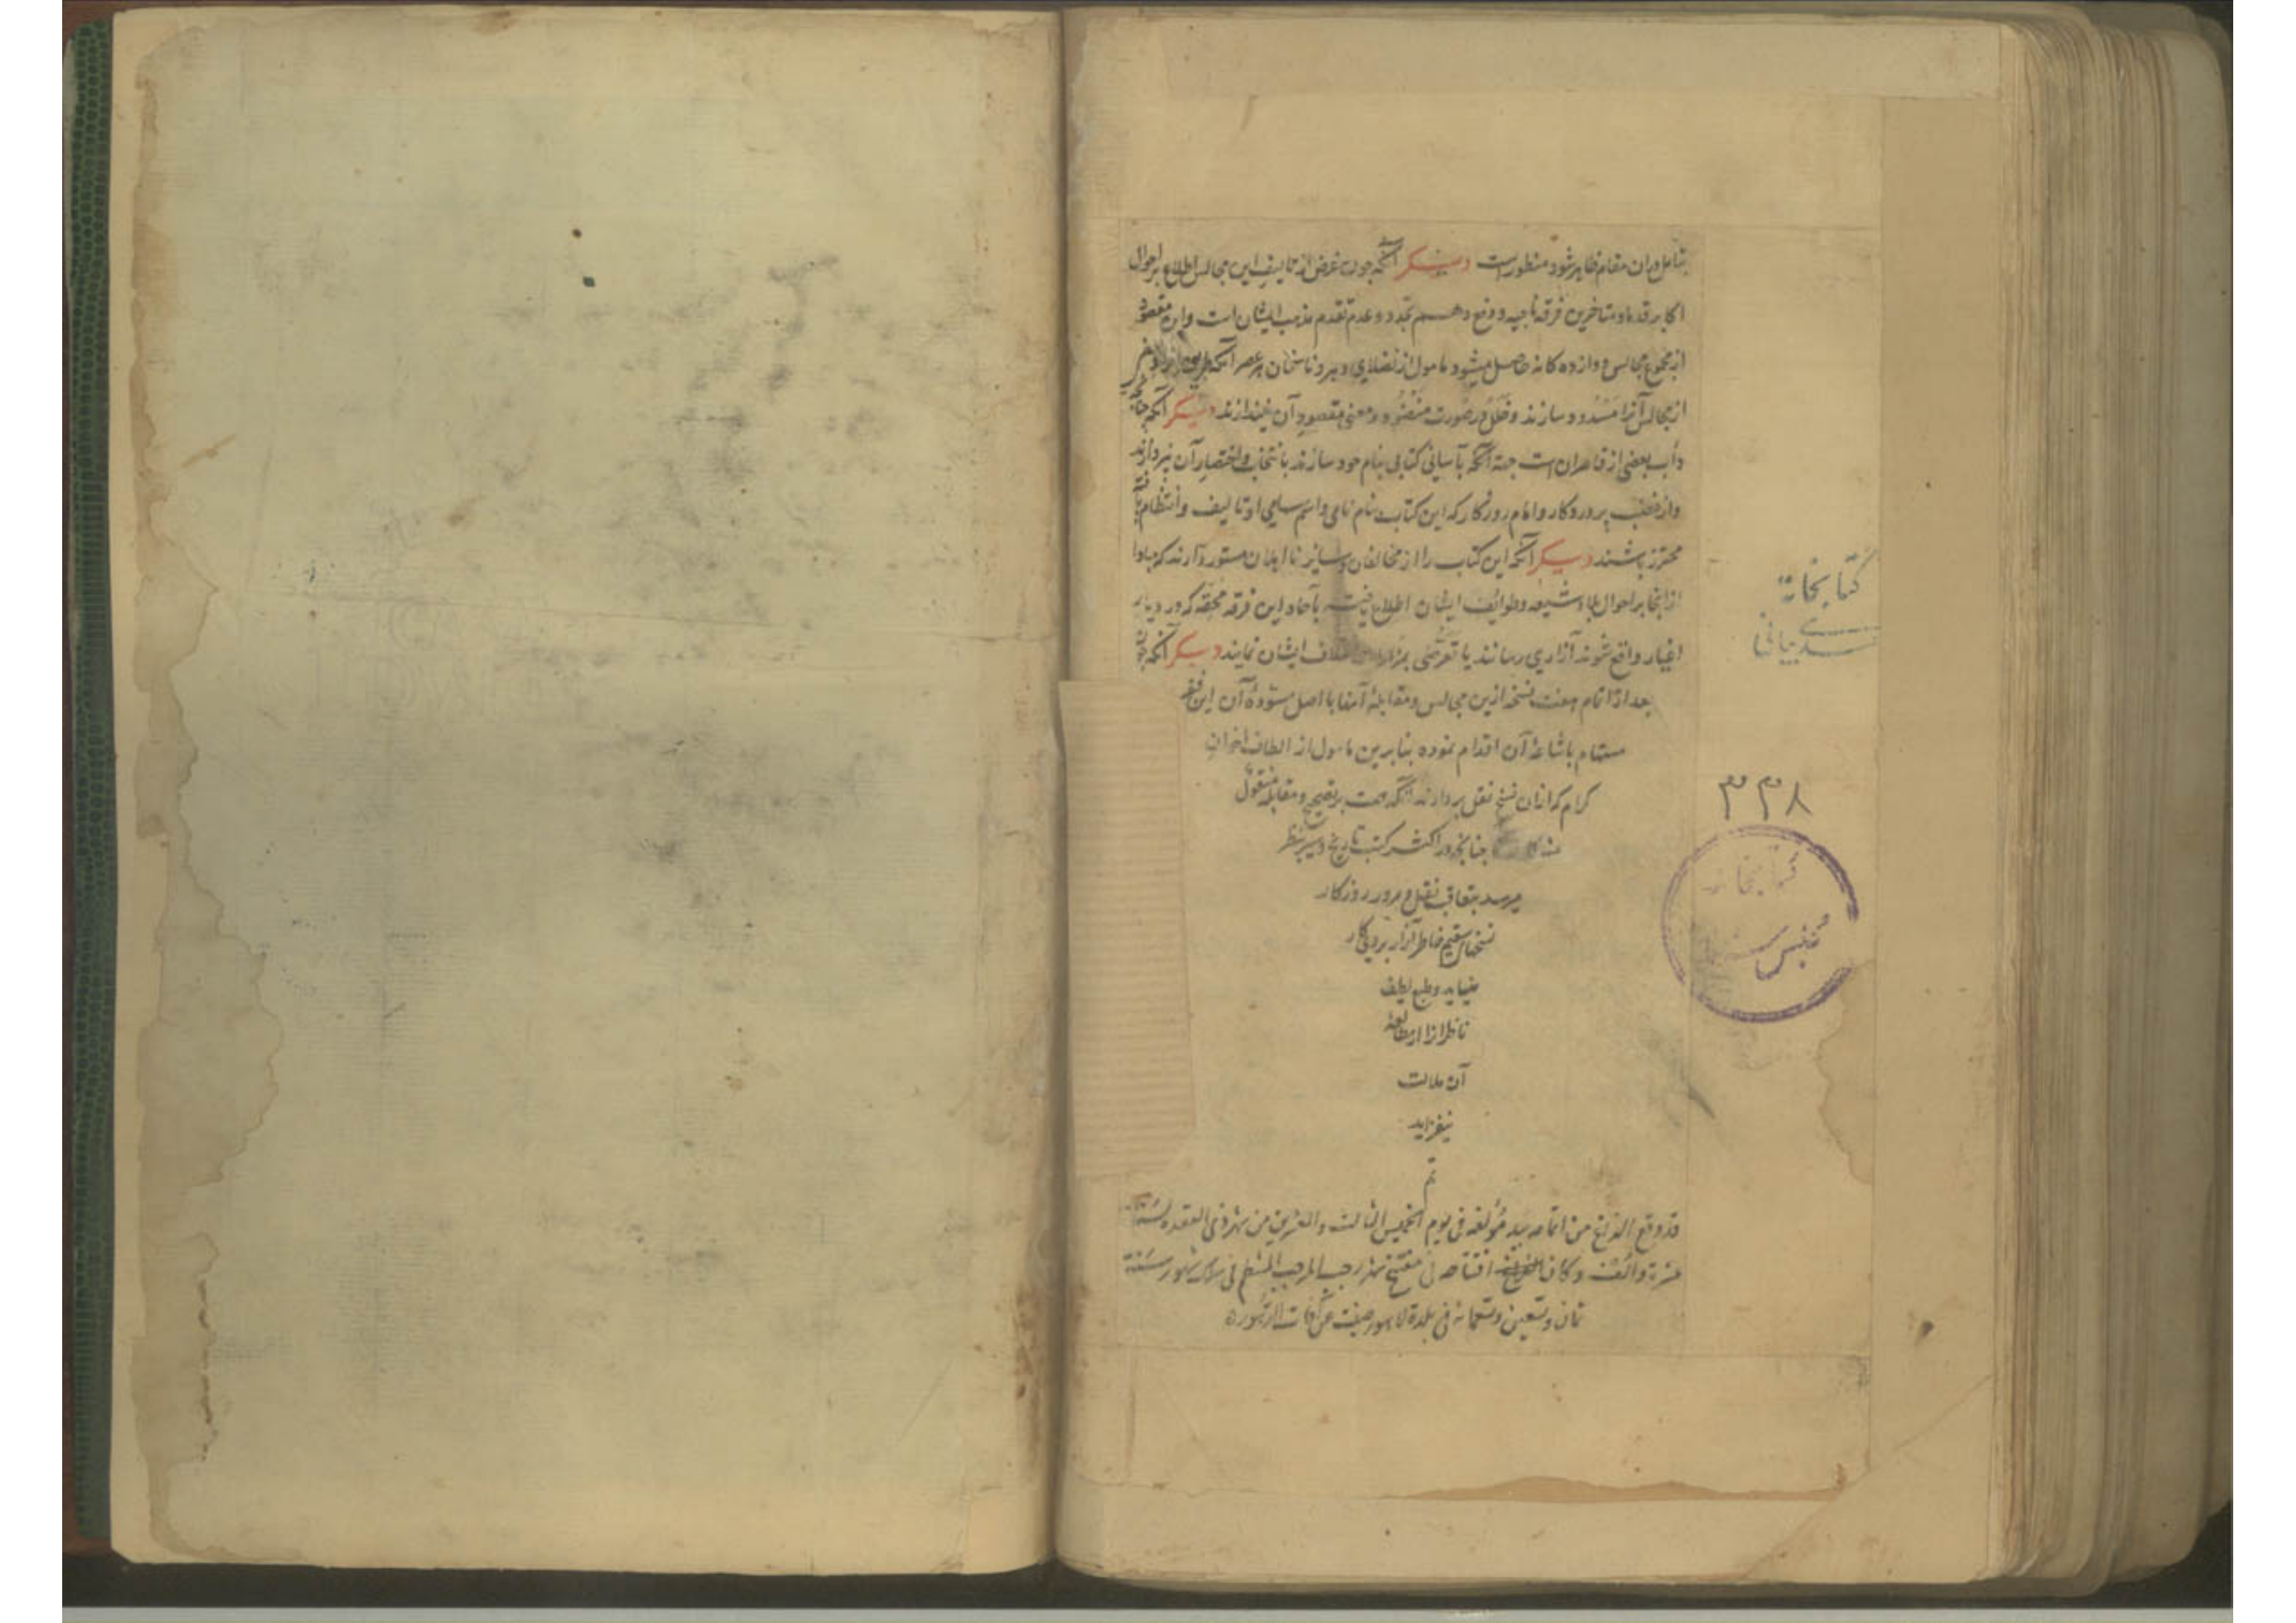 بتأمل دران مقام ظاهر شود منظورست دیگر آنکه چون غرض از تالیف این مجالس اطلاع بر احوال
اکابر قدما و متاخرین فرقه ناجیه و دفع وهم تجدد و عدم تقدم مذهب ایشان است و این مقصود
از مجموع مجالس دوازده کانه حاصل میشود مامول از فضلای دهر و ناسخان هر عصر آنکه
از مجالس آنرا مسدود سازند و خلل در صورت منضود و معنی مقصود آن نیندازند دیگر آنکه چنانچه
دأب بعضی از قاصران است جهة آنکه بآسانی کتابی بنام خود سازند بانتخاب و اختصار آن نپردازند
و از غضب پروردکار و امام روزکار که این کتاب بنام نامی و اسم سامی او تالیف و انتظام یافته
محترز باشند دیگر آنکه این کتاب را از مخالفان و سایر نا اهلان مستور دارند که مبادا
از اینجا بر احوال علماء شیعه و طوائف ایشان اطلاع یافته بآحاد این فرقه محقه که در دیار
اغیار واقع شوند آزاری رسانند یا تعرضی بمزارات اسلاف ایشان نمایند دیگر آنکه چون
بعد از اتمام هفت نسخه ازین مجالس و مقابلهٔ آنها با اصل مسودهٔ آن این فقیر
مستهام باشاعهٔ آن اقدام نموده بنابرین مامول از الطاف اخوان
کرام که ازان نسخ نقل بردارند آنکه همت بر تصحیح و مقابله منقول
چنانچه در اکثر کتب تاریخ و سیر بنظر
میرسد بتعاقب نقل و مرور روزکار
نسخهای سقیم خاطر آزار بر روی کار
نیاید و طبع لطیف
ناظرانرا از مطالعهٔ
آن ملالت
نیفزاید
تم
قد وقع الفراغ من اتمامه بید مؤلفه فی یوم الخمیس الثالث و العشرین من شهر ذی القعده لسنة
عشرة و ألف و کان افتتاحه فی مفتتح شهر رجب المرجب المنتظم فی سلک شهور سنة
ثمان و تسعین و تسعمائة فی بلدة لاهور صینت عن آفات الدهور
کتابخانه
۳۳۸
کتابخانه
مجلس